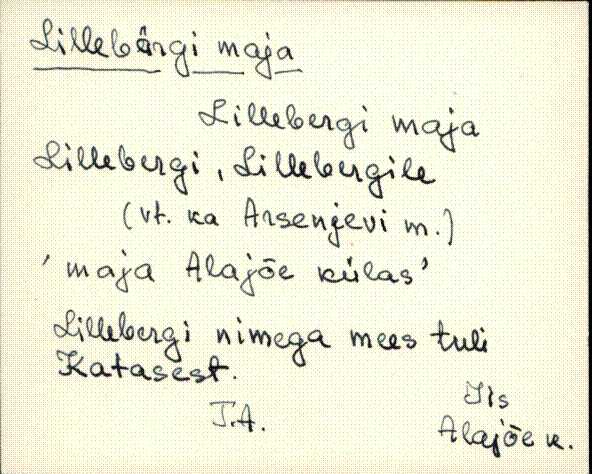 Lillebärgi maja
Lillebergi maja
Lillebergi, Lillebergile
(vt. ka Arsenjevi m.)
'maja Alajõe külas'
Lillebergi nimega mees tuli
Katasest.
J.A.
Iis
Alajõe k.